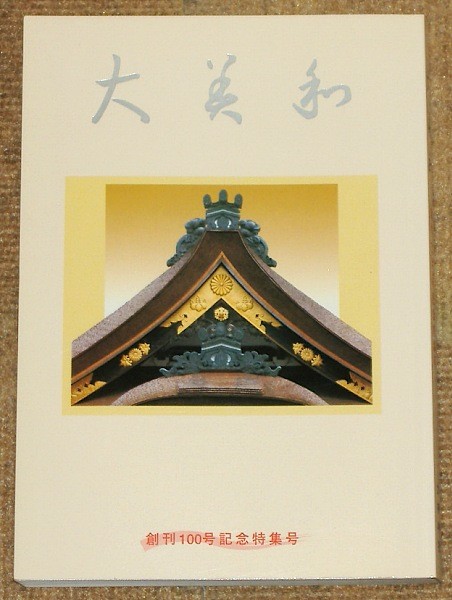 大美和
創刊100号記念特集号